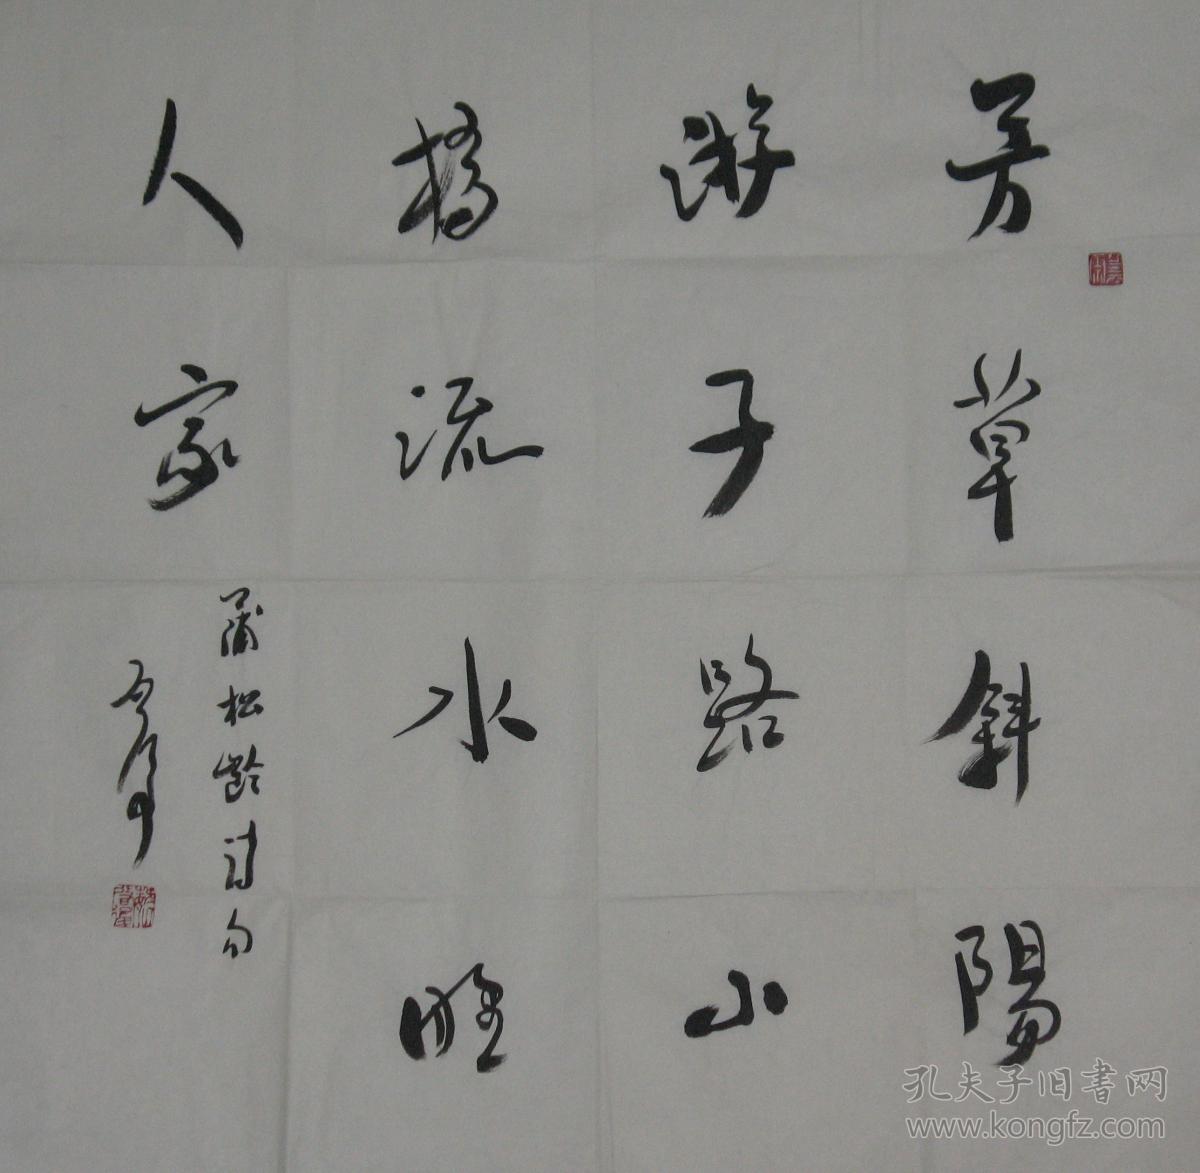 芳草斜陽
游子路小
橋流水
人家
蒲松齡詩句
孔夫子旧書网
www.kongfz.com